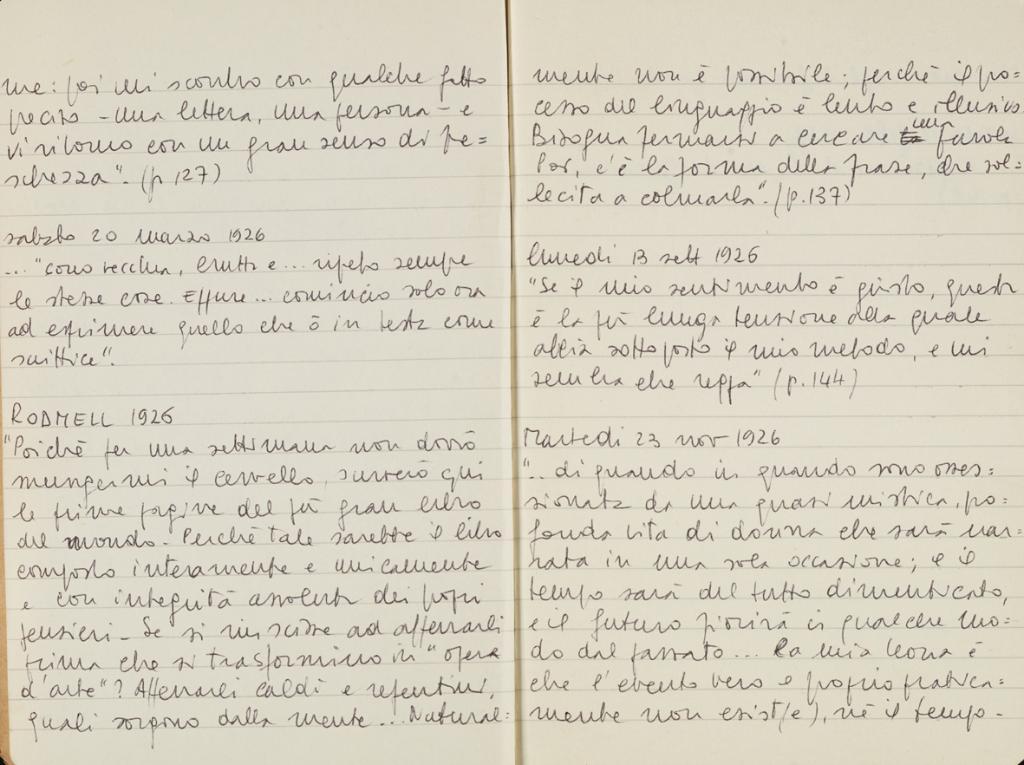 me: poi mi scontro con qualche fatto
preciso - una lettera, una persona - e
vi ritorno con un gran senso di fre=
schezza". (p 127)
sabato 20 marzo 1926
... "sono vecchia, brutta e... ripeto sempre
le stesse cose. Eppure... comincio solo ora
ad esprimere quello che ò in testa come
scrittrice".
RODMELL 1926
"Poichè per una settimana non dovrò
mungermi il cervello, scriverò qui
le prime pagine del più gran libro
del mondo. Perchè tale sarebbe il libro
composto interamente e unicamente
e con integrità assoluta dei propri
pensieri - Se si riuscisse ad afferrarli
prima che si trasformino in "opera
d'arte"? Afferrarli caldi e repentini,
quali sorgono dalla mente... Natural=
mente non è possibile; perchè il pro=
cesso del linguaggio è lento e illusivo.
Bisogna fermarsi a cercare una parola
Poi, c'è la forma della frase, che sol=
lecita a colmarla". (p.137)
lunedi 13 sett 1926
"Se il mio sentimento è giusto, questa
è la più lunga tensione alla quale
abbia sottoposto il mio metodo, e mi
sembra che regga" (p.144)
Martedi 23 nov 1926
"..di quando in quando sono osses=
sionata da una quasi mistica, pro=
fonda vita di donna che sarà nar=
rata in una sola occasione; e il
tempo sarà del tutto dimenticato,
e il futuro fiorirà in qualche mo=
do dal passato... La mia teoria è
che l'evento vero e proprio pratica=
mente non esist(e), nè il tempo -